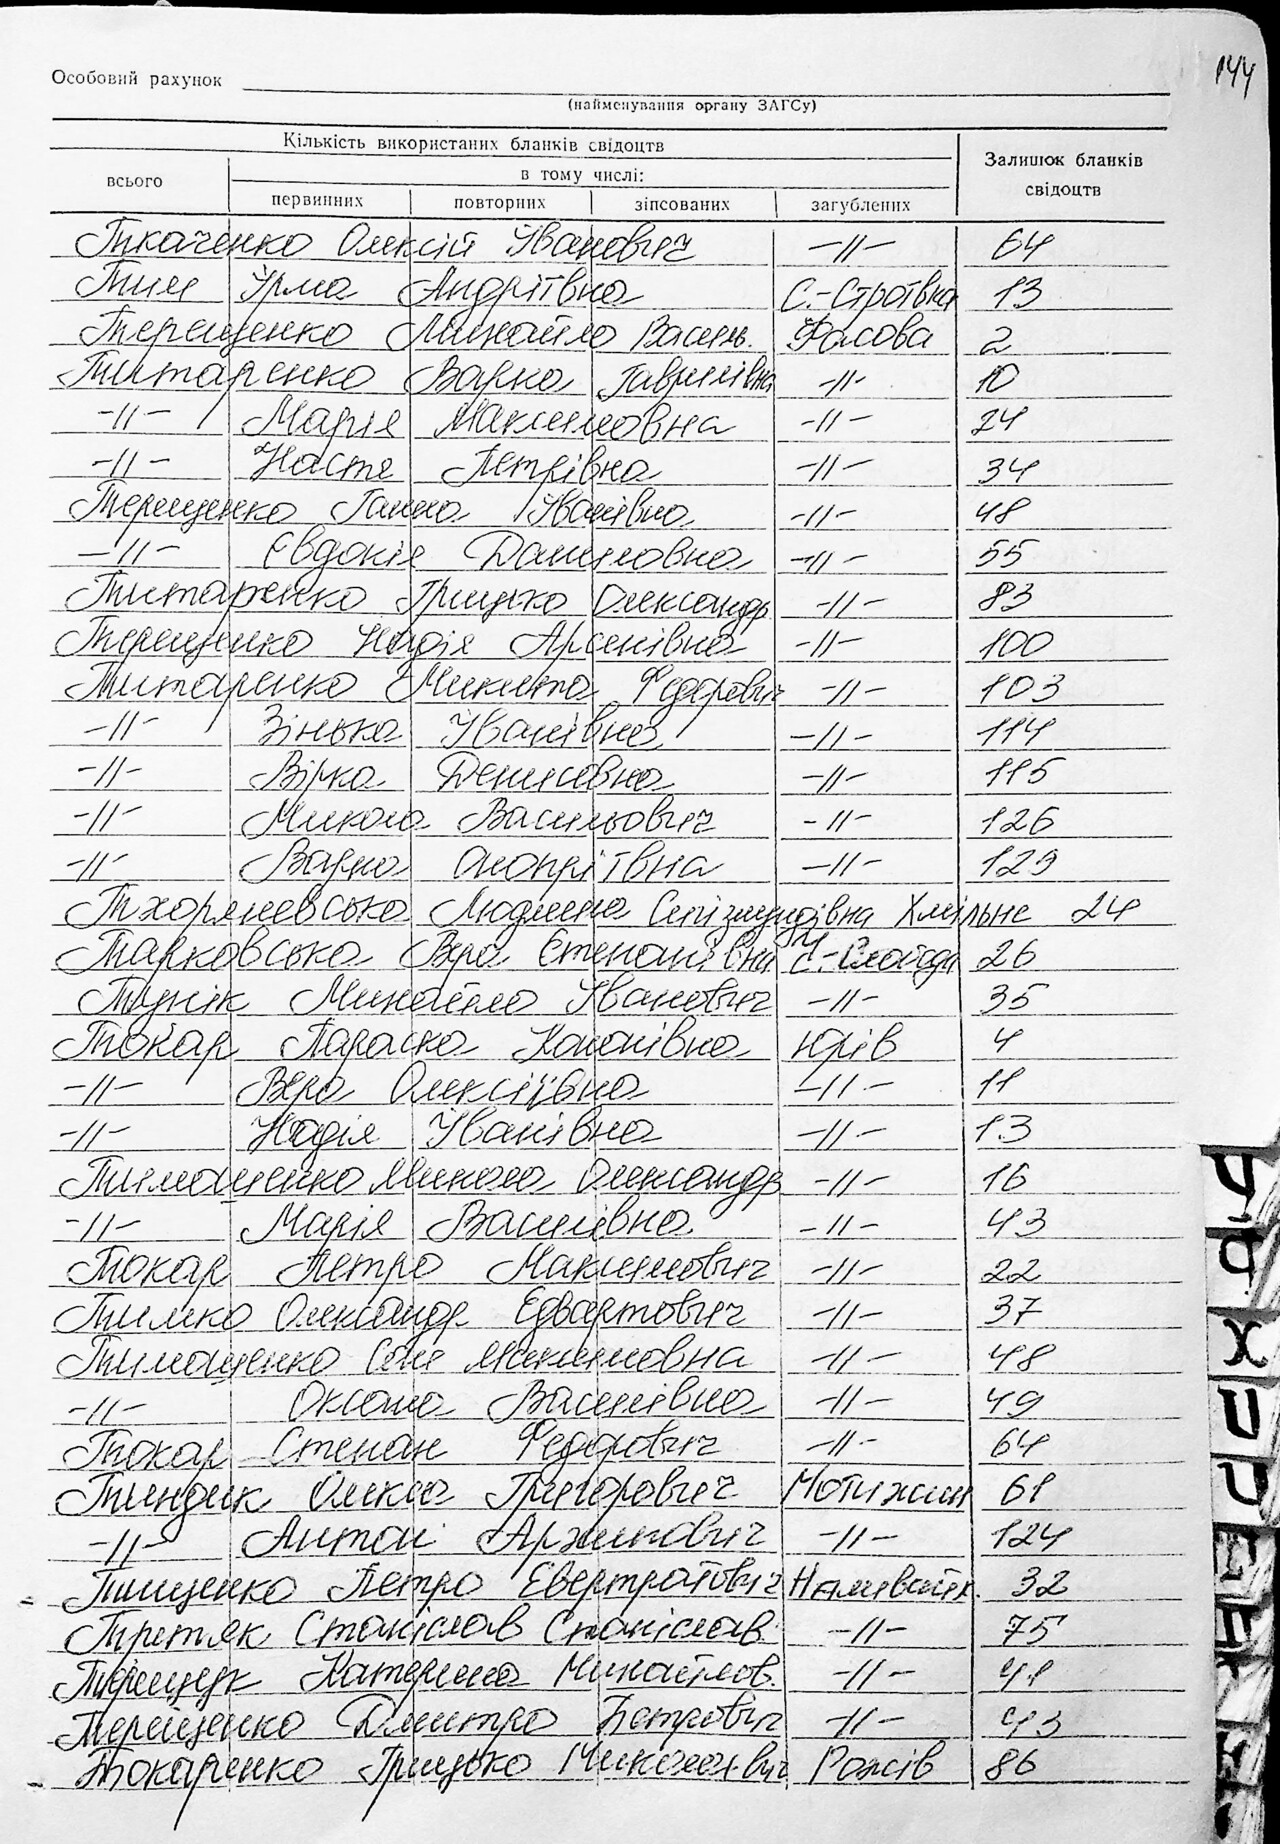 144
Особовий рахунок
(найменування органу ЗАГСу)
Кількість використаних бланків свідоцтв
Залишок бланків свідоцтв
всього
в тому числі:
первинних повторних зіпсованих загублених
Ткаченко Олексій Іванович -//- 64
Тим Ірма Андріївна С.-Строївка 13
Терещенко Михайло Василь. Фасова 2
Титаренко Варка Гаврилівна -//- 10
-//- Марія Максимовна -//- 24
-//- Настя Петрівна -//- 34
Терещенко Ганна Іванівна -//- 48
-//- Євдокія Даниловна -//- 55
Титаренко Грицько Олександр. -//- 83
Терещенко Надія Арсенівна -//- 100
Титаренко Микита Федорович -//- 103
-//- Зінька Іванівна -//- 114
-//- Вірка Денисівна -//- 115
-//- Микола Васильович -//- 126
-//- Варка Онопріївна -//- 129
Тхоржевська Людмила Сигізмундівна Хмільна 24
Тарковська Вєра Степанівна 26
Тунік Михайло Іванович -//- 35
Токар Параска Кононівна Юрів 4
-//- Вєра Олексіївна -//- 11
-//- Надія Іванівна -//- 13
Тимощенко Микола Олександр. -//- 16
-//- Марія Василівна -//- 43
Токар Петро Максимович -//- 22
Тимко Олександр Едвартович -//- 37
Тимощенко Соня Максимовна -//- 48
-//- Оксана Василівна -//- 49
Токар Степан Федорович -//- 64
Тиндик Олекса Григорович Мотижин 61
-//- Антон -//- 124
Тищенко Петро Евертратович Наливайк. 32
Третяк Станіслав Станіслав. -//- 75
Терещук Катерина Михайлов. -//- 41
Терещенко Дмитро Петрович -//- 43
Токаренко Грицько Миколович Рожів 86
Ц
Ф
Х
Ц